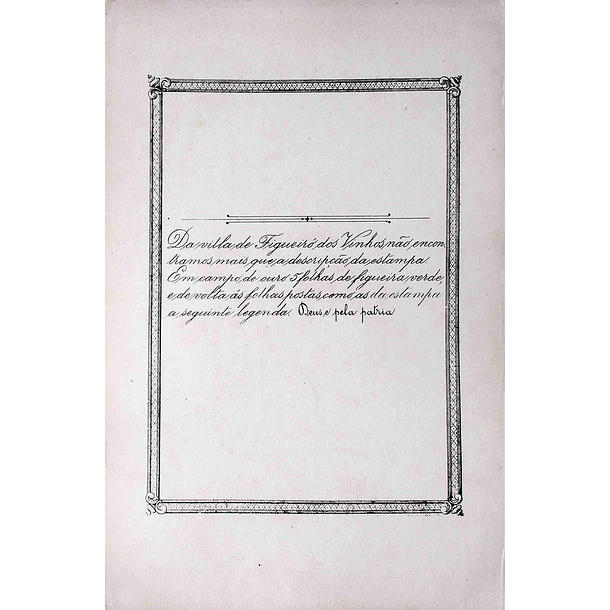 Da villa de Figueiró dos Vinhos não encon-
tramos mais que a descripção da estampa
Em campo de ouro 5 folhas de figueira verde,
e de volta ás folhas postas como as da estampa
a seguinte legenda. Deus e pela patria